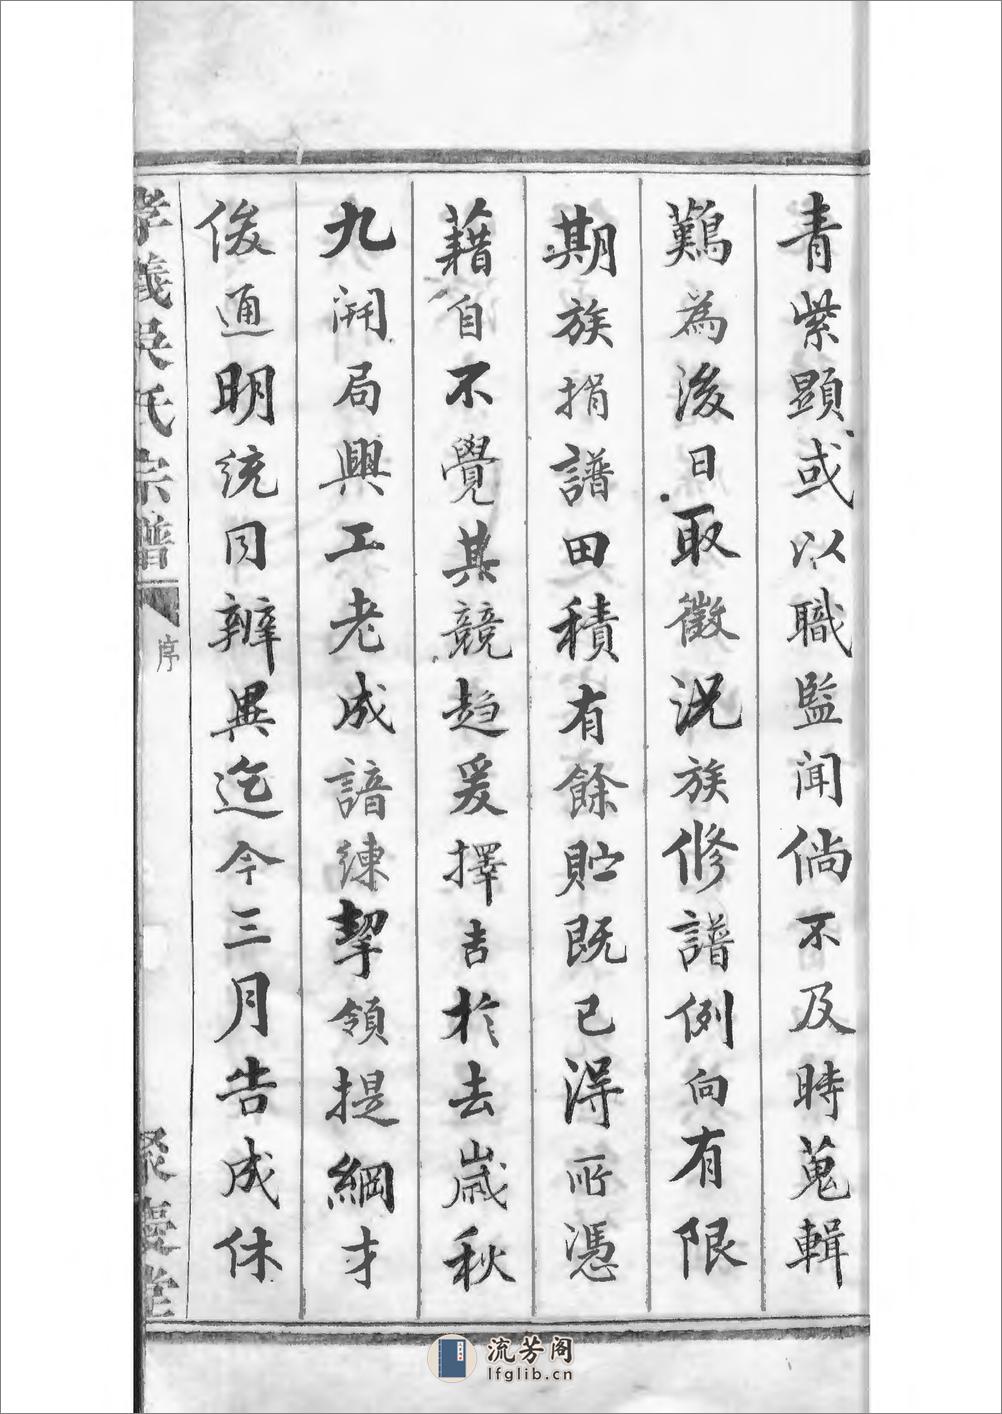 青紫顯或以職監聞倘不及時蒐輯
難為後日取徵況族修譜例向有限
期族捐譜田積有餘貯既已得所憑
藉自不覺其競趋爰擇吉於去歲秋
九開局興工老成諳練挈領提綱才
俊通明統同辨異迄今三月告成休
孝義吳氏宗譜
序
聚慶堂
流芳阁
lfglib.cn